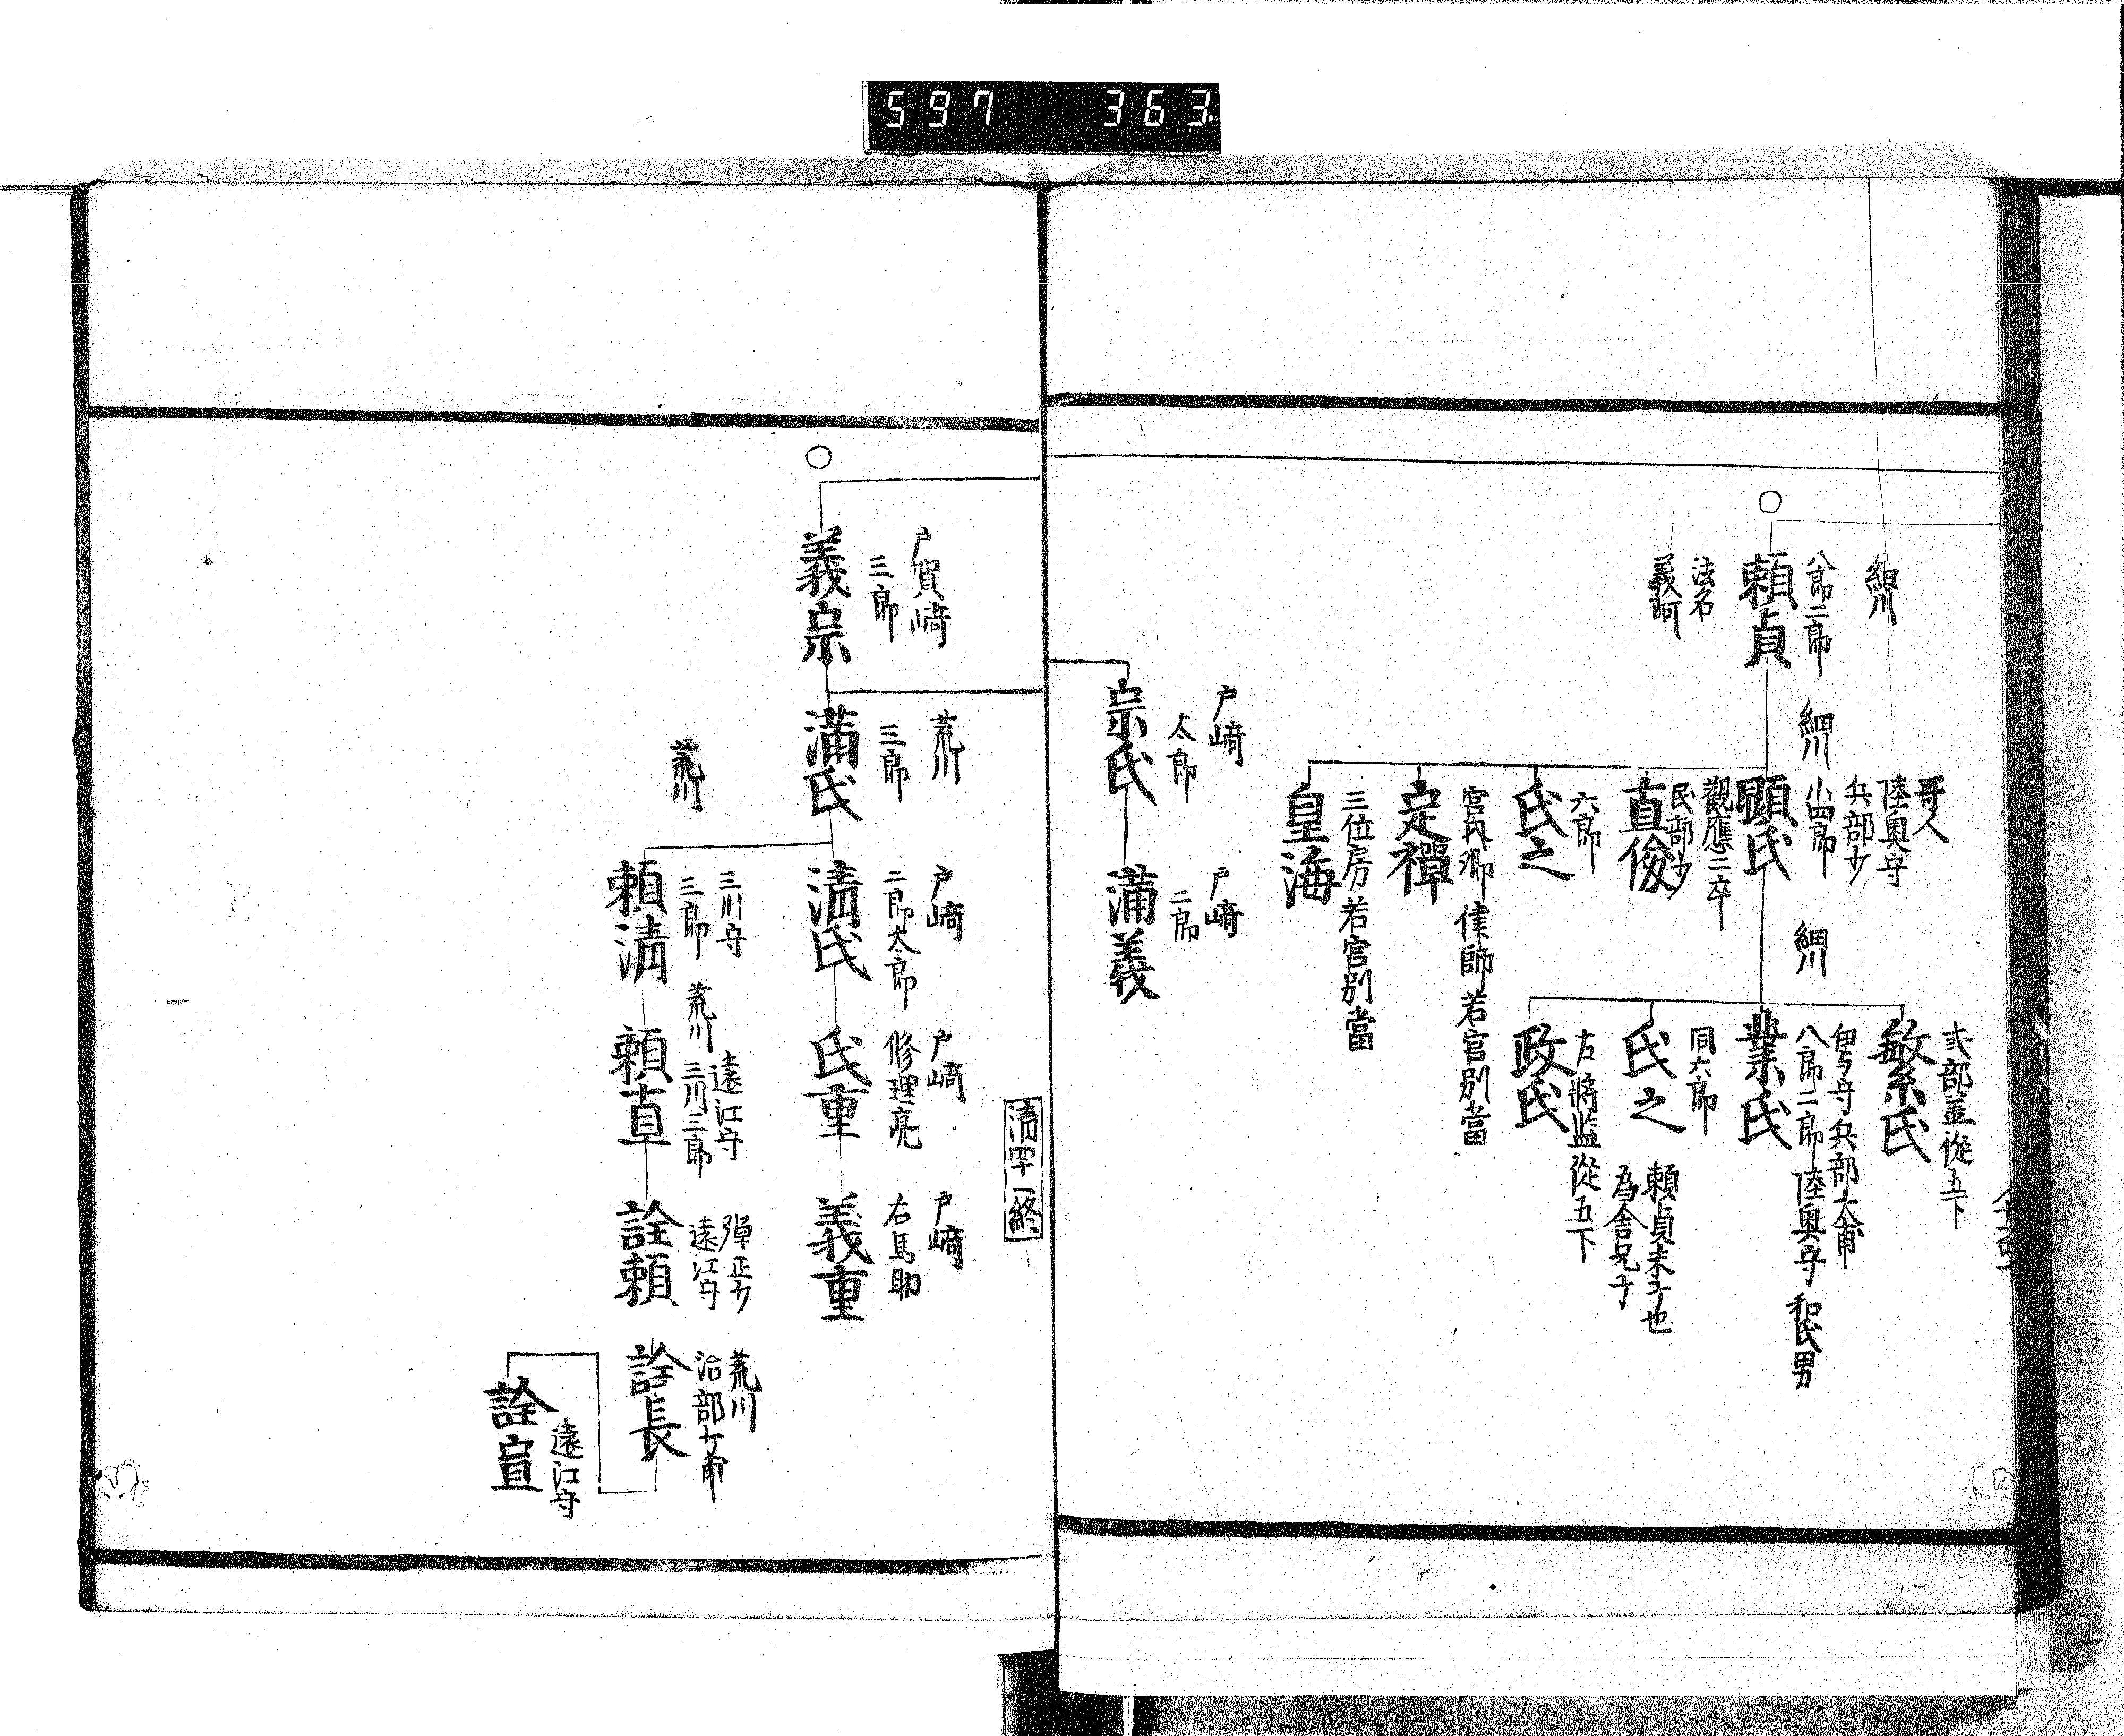 597 363
細川
八郎二郎
頼貞
法名
義阿
哥人
陸奥守
兵部少
細川
小四郎
顕氏
觀應二卒
民部少
直俊
六郎
氏之
宮内卿律師若宮別當
定禅
三位房若宮別當
皇海
細川
式部丞從五下
繁氏
伊与守兵部大甫
八郎二郎陸奥守和氏男
業氏
同六郎
氏之
頼貞末子也
為舎兄子
右将監從五下
政氏
戸﨑
太郎
宗氏
戸﨑
二郎
満義
清四十一終
戸賀﨑
三郎
義宗
荒川
三郎
満氏
戸﨑
二郎太郎
清氏
戸﨑
修理亮
氏重
戸﨑
右馬助
義重
荒川
三川守
三郎
頼清
荒川
遠江守
三川三郎
頼直
弾正少
遠江守
詮頼
荒川
治部少甫
詮長
遠江守
詮宣